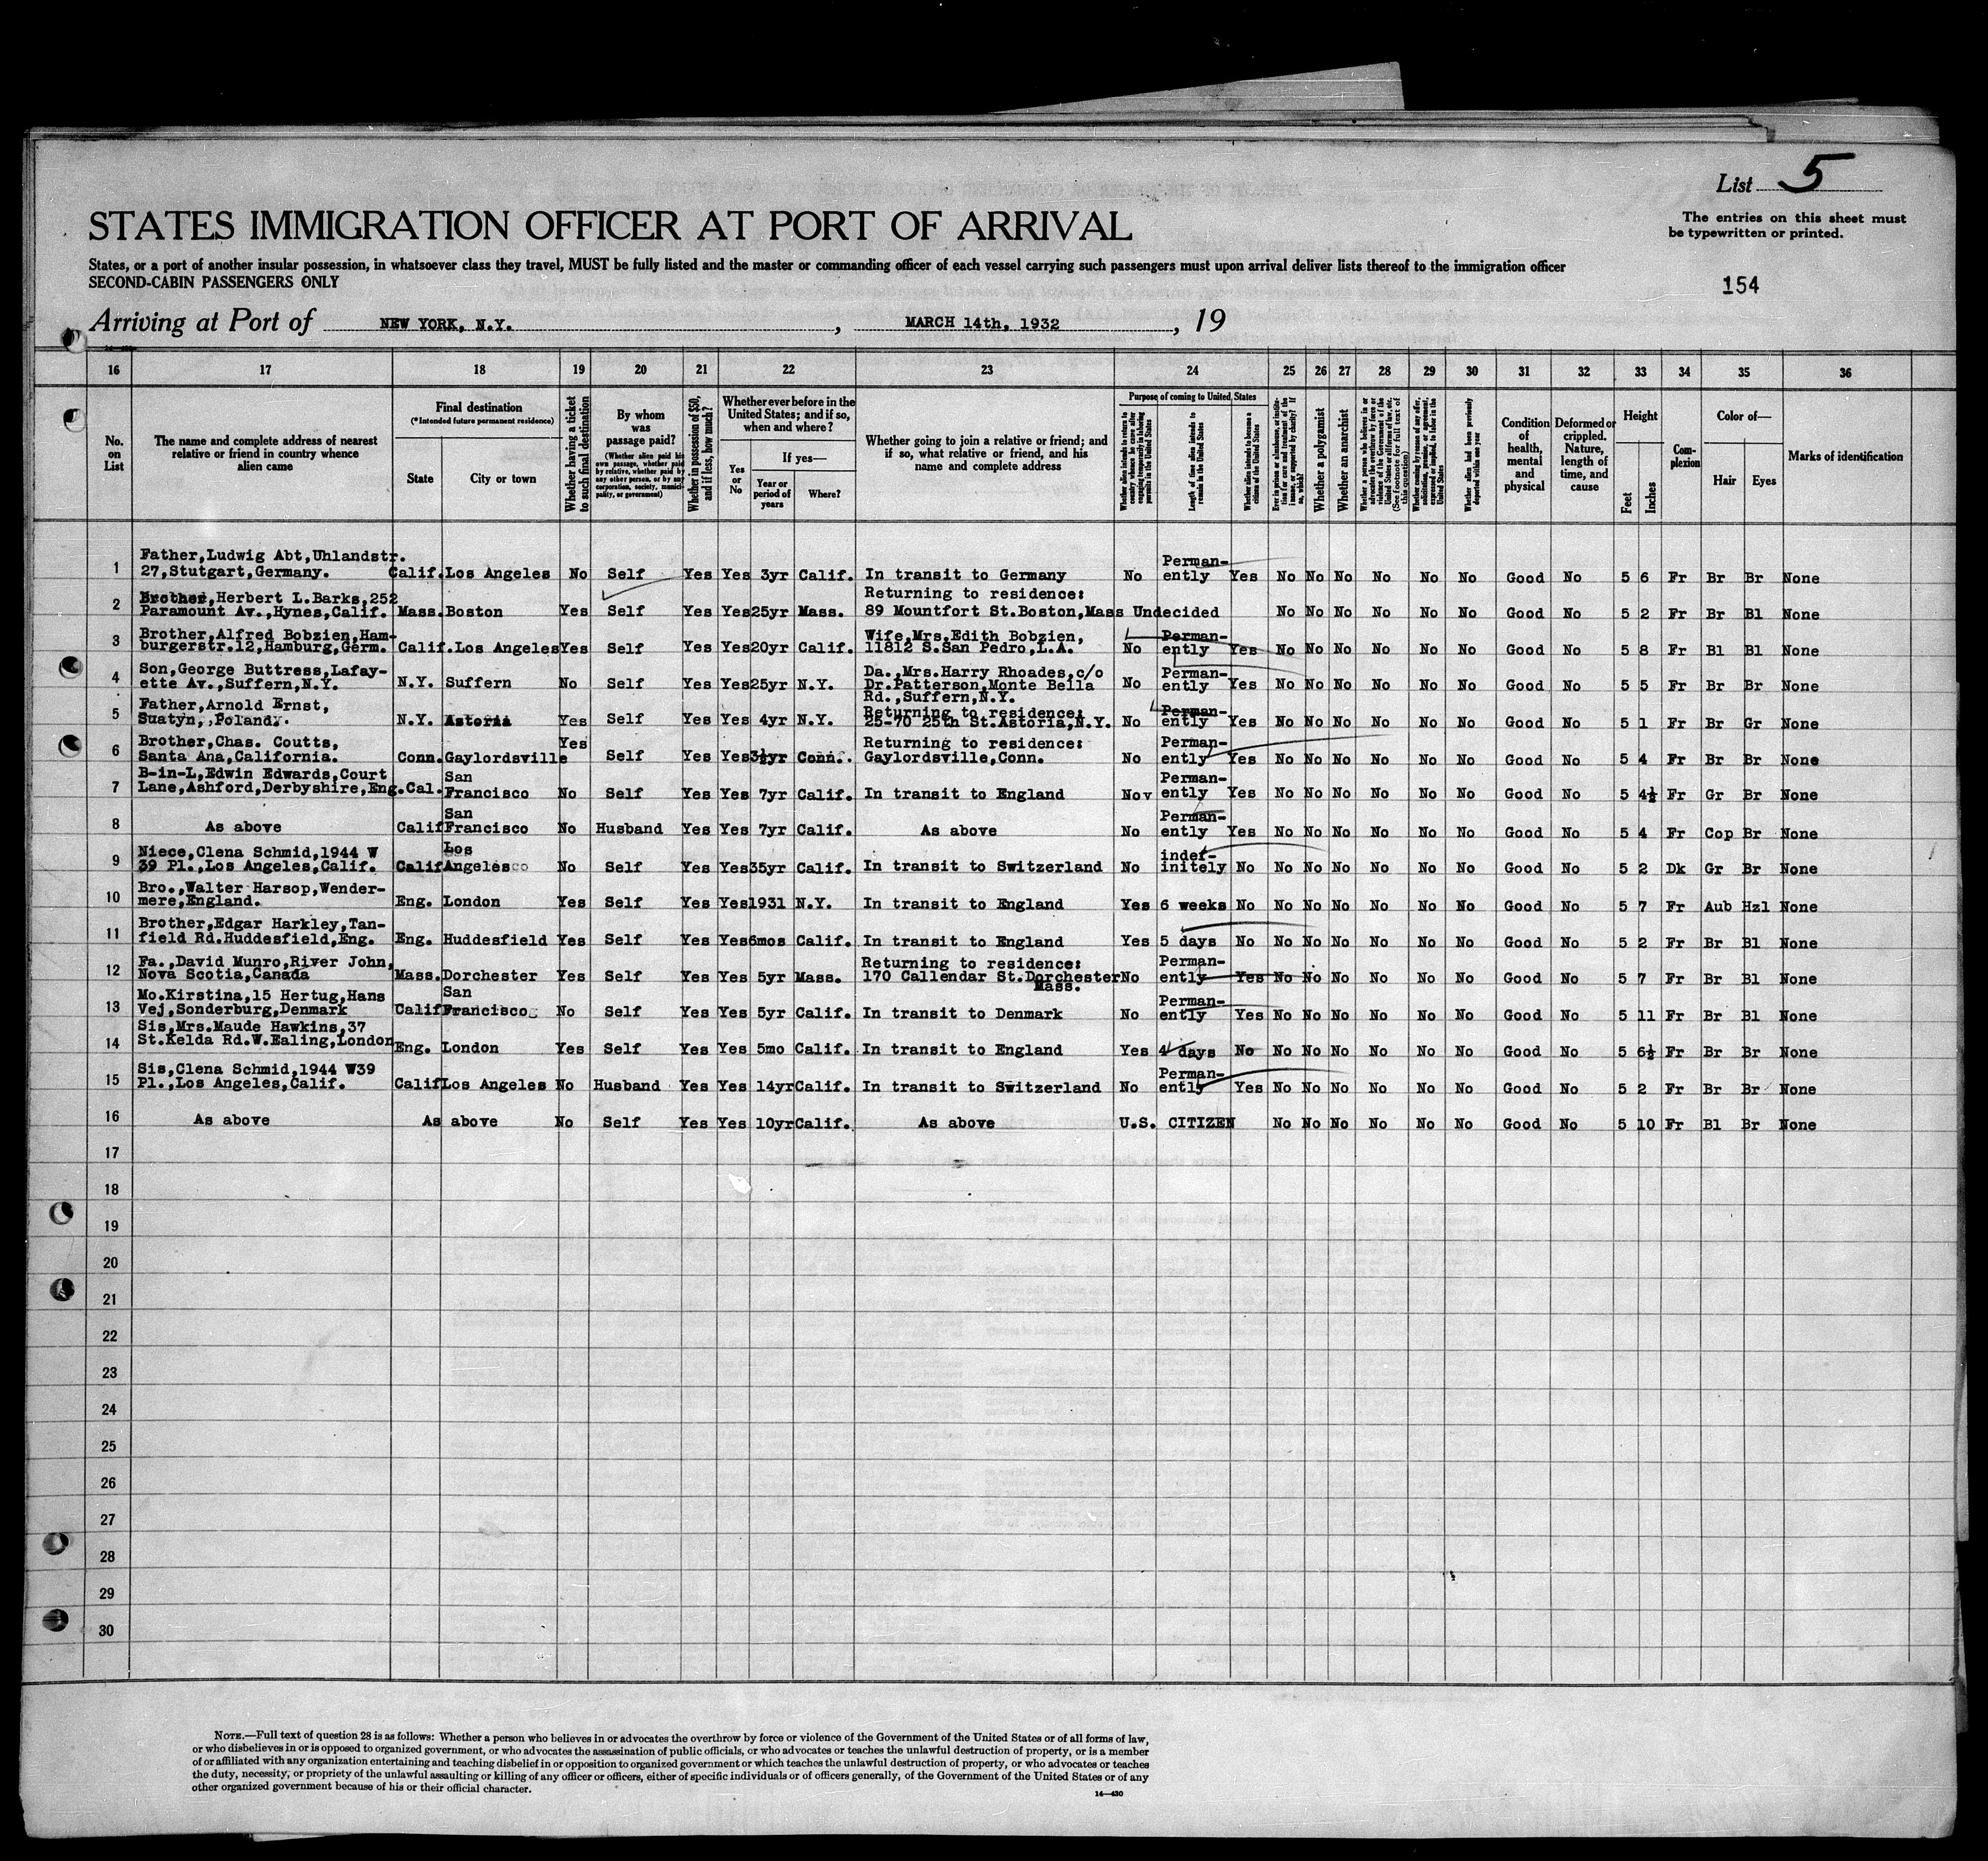 List 5
The entries on this sheet must
be typewritten or printed.
STATES IMMIGRATION OFFICER AT PORT OF ARRIVAL
States, or a port of another insular possession, in whatsoever class they travel, MUST be fully listed and the master or commanding officer of each vessel carrying such passengers must upon arrival deliver lists thereof to the immigration officer
SECOND-CABIN PASSENGERS ONLY
154
Arriving at Port of NEW YORK, N.Y. , MARCH 14th, 1932 , 19
16 17 18 19 20 21 22 23 24 25 26 27 28 29 30 31 32 33 34 35 36
No. on List
The name and complete address of nearest relative or friend in country whence alien came
Final destination
(*Intended future permanent residence)
State
City or town
Whether having a ticket to such final destination
By whom was passage paid?
(Whether alien paid his own passage, whether paid by relative, whether paid by any other person, or by any corporation, society, municipality, or government)
Whether in possession of $50, and if less, how much?
Whether ever before in the United States; and if so, when and where?
Yes or No
If yes—
Year or period of years
Where?
Whether going to join a relative or friend; and if so, what relative or friend, and his name and complete address
Purpose of coming to United States
Length of time alien intends to remain in the United States
Whether alien intends to become a citizen of the United States
Whether a polygamist
Whether an anarchist
Whether alien had been previously deported within one year
Condition of health, mental and physical
Deformed or crippled. Nature, length of time, and cause
Height
Feet
Inches
Complexion
Color of—
Hair
Eyes
Marks of identification
1 Father,Ludwig Abt,Uhlandstr. 27,Stutgart,Germany. Calif. Los Angeles No Self Yes Yes 3yr Calif. In transit to Germany No Perman-ently Yes No No No No No No Good No 5 6 Fr Br Br None
2 Brother,Herbert L.Barks,252 Paramount Av.,Hynes,Calif. Mass. Boston Yes Self Yes Yes 25yr Mass. Returning to residence: 89 Mountfort St.Boston,Mass Undecided No No No No No No Good No 5 2 Fr Br Bl None
3 Brother,Alfred Bobzien,Ham-burgerstr.12,Hamburg,Germ. Calif. Los Angeles Yes Self Yes Yes 20yr Calif. Wife,Mrs.Edith Bobzien, 11812 S.San Pedro,L.A. No Perman-ently Yes No No No No No No Good No 5 8 Fr Bl Bl None
4 Son,George Buttress,Lafay-ette Av.,Suffern,N.Y. N.Y. Suffern No Self Yes Yes 25yr N.Y. Da.,Mrs.Harry Rhoades,c/o Dr.Patterson,Monte Bella Rd.,Suffern,N.Y. No Perman-ently Yes No No No No No No Good No 5 5 Fr Br Br None
5 Father,Arnold Ernst, Suatyn,,Poland,. N.Y. Astoria Yes Self Yes Yes 4yr N.Y. Returning to residence: 25-70 25th St.Astoria,N.Y. No Perman-ently Yes No No No No No No Good No 5 1 Fr Br Gr None
6 Brother,Chas. Coutts, Santa Ana,California. Conn. Gaylordsville Yes Self Yes Yes 3½yr Conn.. Returning to residence: Gaylordsville,Conn. No Perman-ently Yes No No No No No No Good No 5 4 Fr Br Br None
7 B-in-L,Edwin Edwards,Court Lane,Ashford,Derbyshire,Eng. Cal. San Francisco No Self Yes Yes 7yr Calif. In transit to England No v Perman-ently Yes No No No No No No Good No 5 4½ Fr Gr Br None
8 As above Calif San Francisco No Husband Yes Yes 7yr Calif. As above No Perman-ently Yes No No No No No No Good No 5 4 Fr Cop Br None
9 Niece,Clena Schmid,1944 W 39 Pl.,Los Angeles,Calif. Calif Los Angelesco No Self Yes Yes 35yr Calif. In transit to Switzerland No indef-initely No No No No No No No Good No 5 2 Dk Gr Br None
10 Bro.,Walter Harsop,Wender-mere,England. Eng. London Yes Self Yes Yes 1931 N.Y. In transit to England Yes 6 weeks No No No No No No No Good No 5 7 Fr Aub Hzl None
11 Brother,Edgar Harkley,Tan-field Rd.Huddesfield,Eng. Eng. Huddesfield Yes Self Yes Yes 6mos Calif. In transit to England Yes 5 days No No No No No No No Good No 5 2 Fr Br Bl None
12 Fa.,David Munro,River John, Nova Scotia,Canada Mass. Dorchester Yes Self Yes Yes 5yr Mass. Returning to residence: 170 Callendar St.Dorchester Mass. No Perman-ently Yes No No No No No No Good No 5 7 Fr Br Bl None
13 Mo.Kirstina,15 Hertug,Hans Vej,Sonderburg,Denmark Calif San Francisco No Self Yes Yes 5yr Calif. In transit to Denmark No Perman-ently Yes No No No No No No Good No 5 11 Fr Br Bl None
14 Sis,Mrs.Maude Hawkins,37 St.Kelda Rd.W.Ealing,London Eng. London Yes Self Yes Yes 5mo Calif. In transit to England Yes 4 days No No No No No No No Good No 5 6½ Fr Br Br None
15 Sis,Clena Schmid,1944 W39 Pl.,Los Angeles,Calif. Calif Los Angeles No Husband Yes Yes 14yr Calif. In transit to Switzerland No Perman-ently Yes No No No No No No Good No 5 2 Fr Br Br None
16 As above As above No Self Yes Yes 10yr Calif. As above U.S. CITIZEN No No No No No No Good No 5 10 Fr Bl Br None
17
18
19
20
21
22
23
24
25
26
27
28
29
30
NOTE.—Full text of question 28 is as follows: Whether a person who believes in or advocates the overthrow by force or violence of the Government of the United States or of all forms of law,
or who disbelieves in or is opposed to organized government, or who advocates the assassination of public officials, or who advocates or teaches the unlawful destruction of property, or is a member
of or affiliated with any organization entertaining and teaching disbelief in or opposition to organized government or which teaches the unlawful destruction of property, or who advocates or teaches
the duty, necessity, or propriety of the unlawful assaulting or killing of any officer or officers, either of specific individuals or of officers generally, of the Government of the United States or of any
other organized government because of his or their official character.
14—430